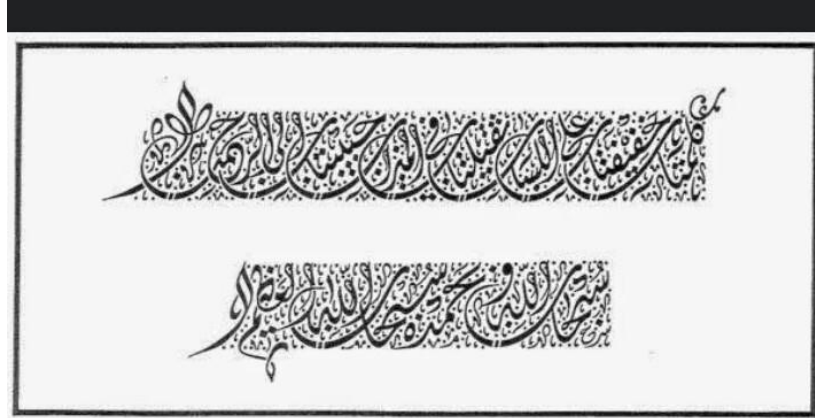 كلمتان خفيفتان على اللسان ثقيلتان في الميزان حبيبتان الى الرحمن
سبحان الله وبحمده سبحان الله العظيم